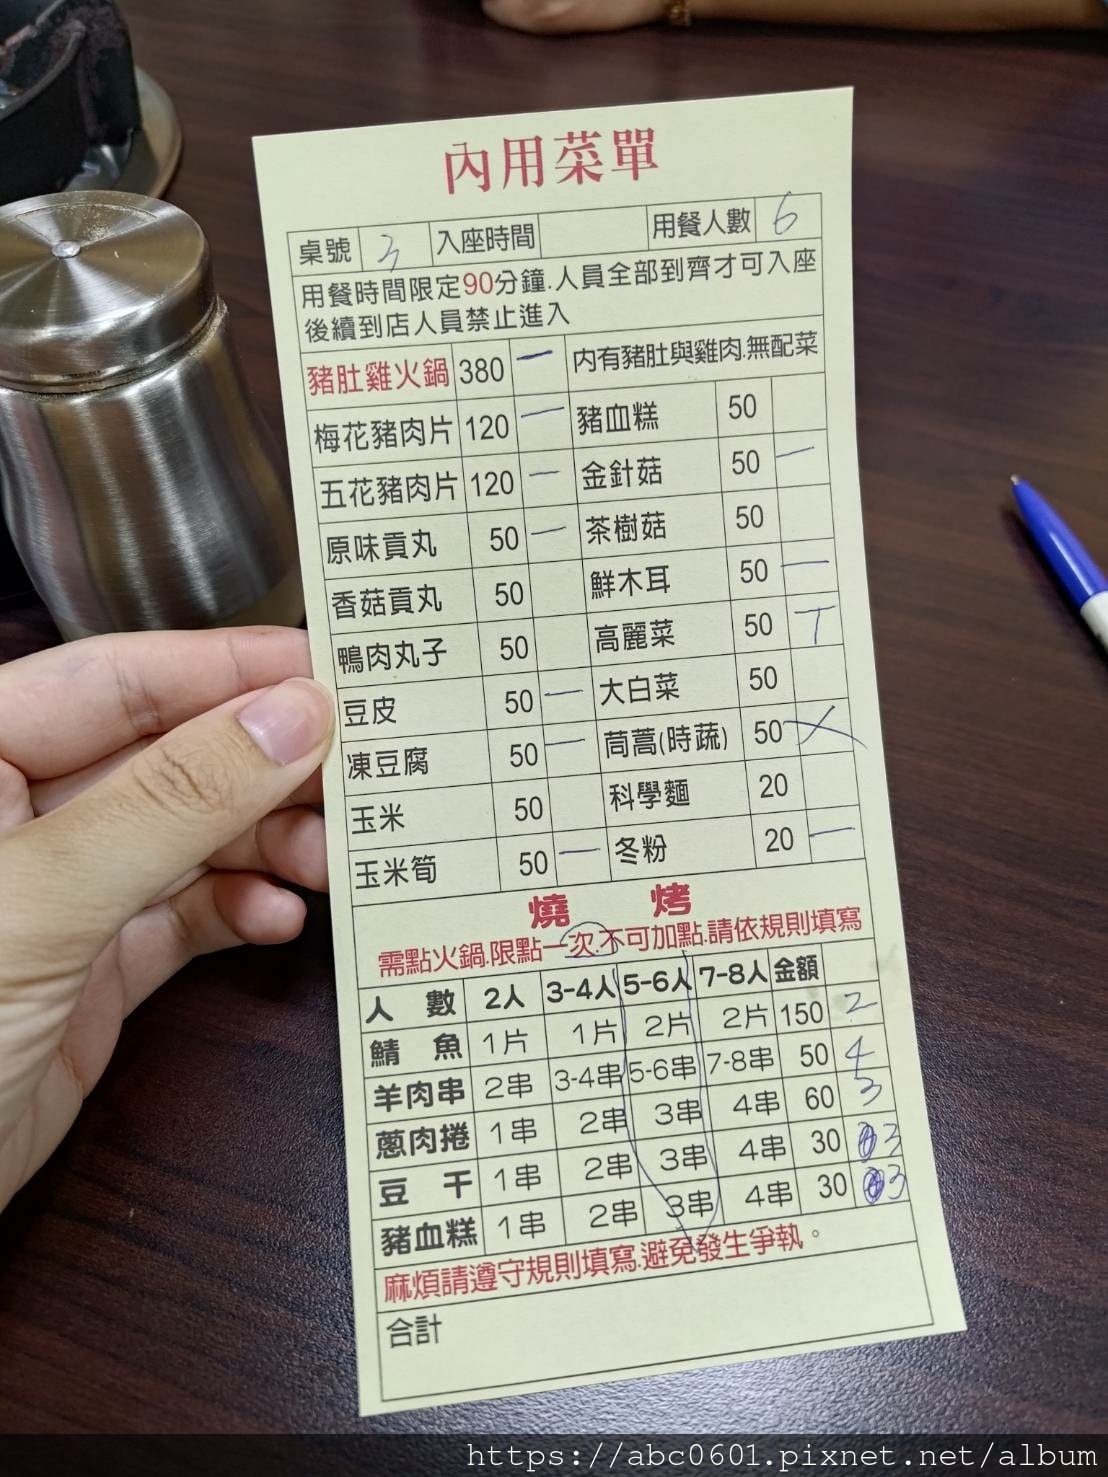 內用菜單
桌號 3 入座時間 用餐人數 6
用餐時間限定90分鐘.人員全部到齊才可入座
後續到店人員禁止進入
豬肚雞火鍋 380 一 內有豬肚與雞肉.無配菜
梅花豬肉片 120 一 豬血糕 50
五花豬肉片 120 一 金針菇 50 一
原味貢丸 50 一 茶樹菇 50
香菇貢丸 50 鮮木耳 50 一
鴨肉丸子 50 高麗菜 50 T
豆皮 50 一 大白菜 50
凍豆腐 50 一 茼蒿(時蔬) 50 X
玉米 50 科學麵 20
玉米筍 50 一 冬粉 20 一
燒 烤
需點火鍋.限點一次.不可加點.請依規則填寫
人 數 2人 3-4人 5-6人 7-8人 金額
鯖 魚 1片 1片 2片 2片 150 2
羊肉串 2串 3-4串 5-6串 7-8串 50 4
蔥肉捲 1串 2串 3串 4串 60 3
豆 干 1串 2串 3串 4串 30 3
豬血糕 1串 2串 3串 4串 30 3
麻煩請遵守規則填寫.避免發生爭執。
合計
https://abc0601.pixnet.net/album